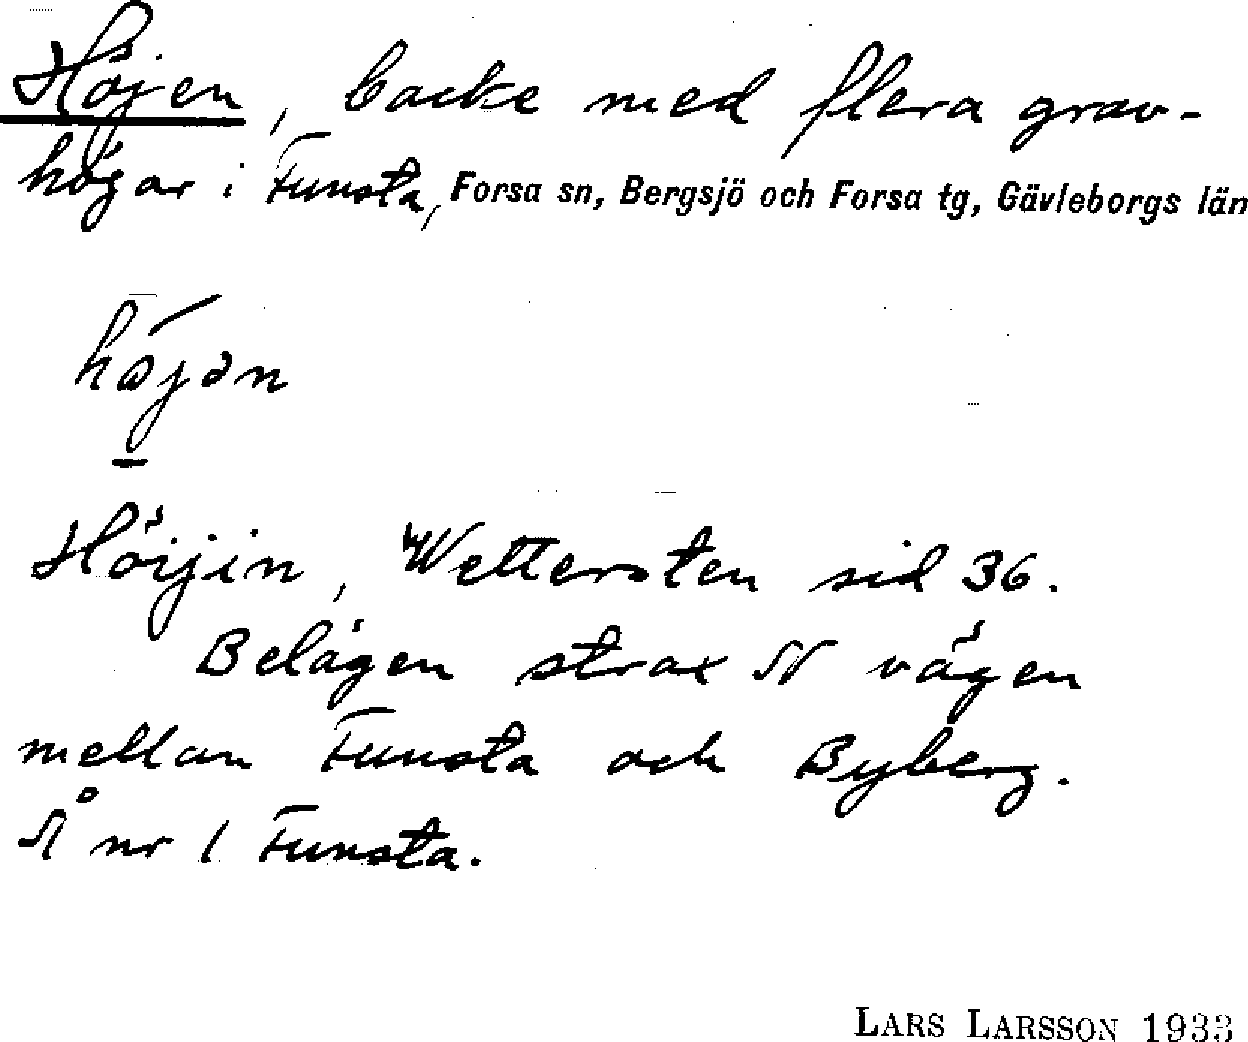 Höjen, backe med flera grav-
högar i Funsta, Forsa sn, Bergsjö och Forsa tg, Gävleborgs län
Höijin, Wettersten sid 36.
Belägen strax N vägen
mellan Funsta och Byberg.
Å nr 1 Funsta.
LARS LARSSON 1933